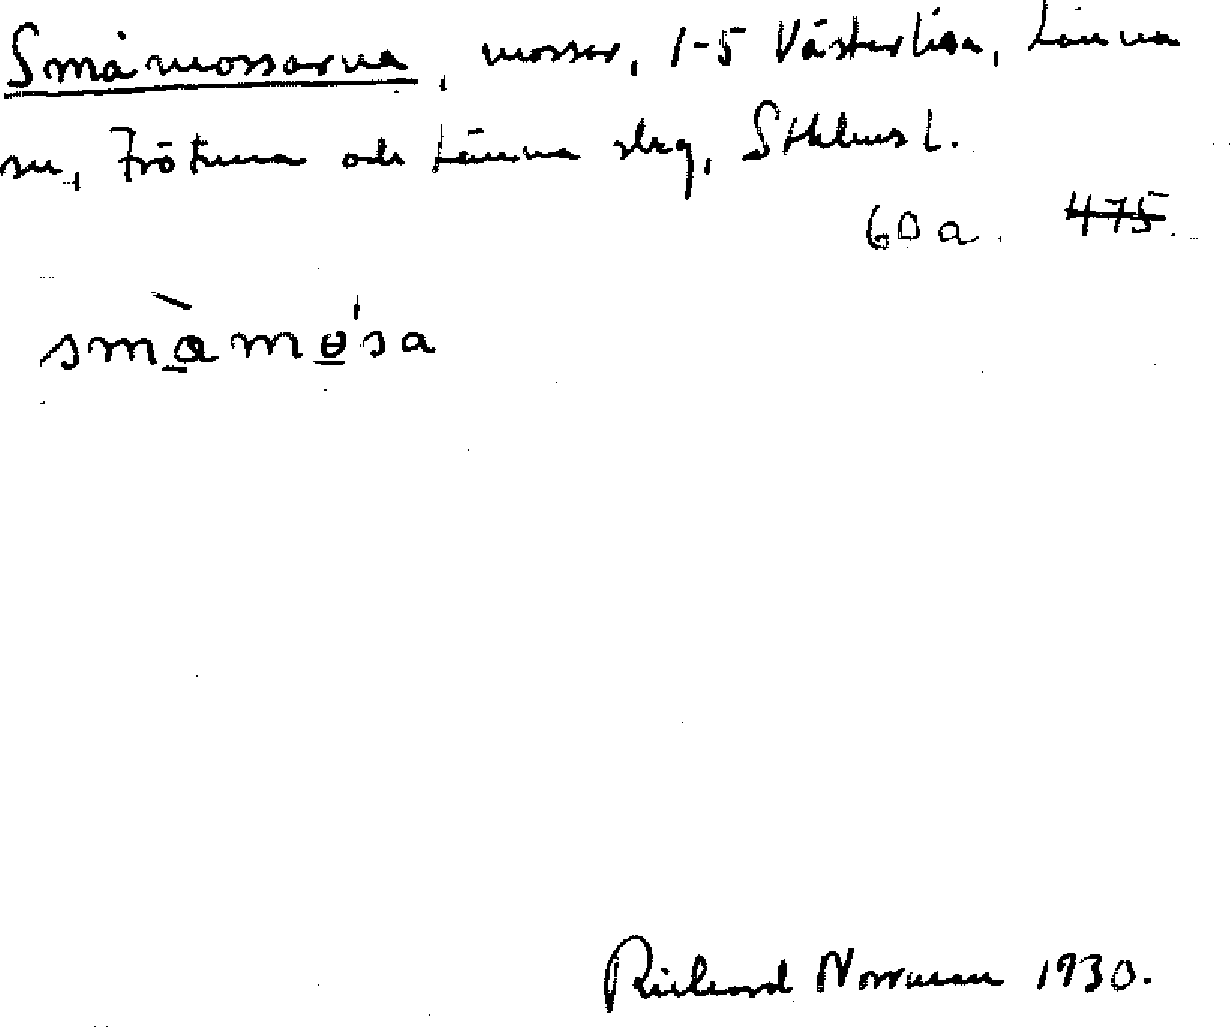 Småmossarna, mossar, 1-5 Västerlisa, Länna
sn, Frötuna och Länna slkg, Sthlms l.
60 a. 475.
småmosa
Richard Norrman 1930.